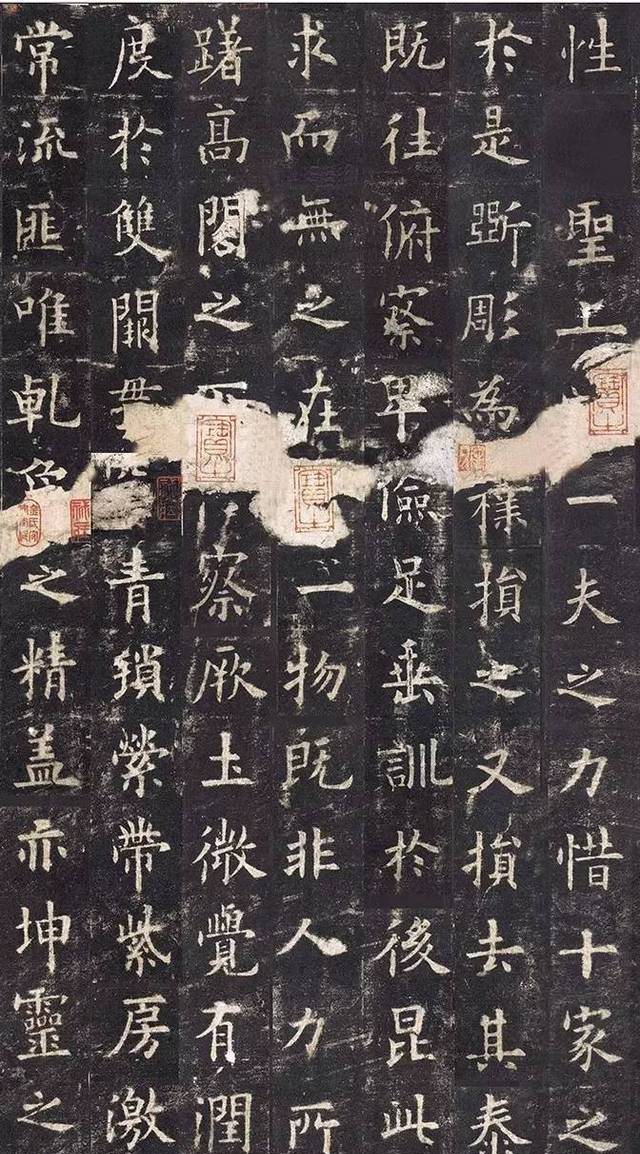 性聖上一夫之力惜十家之
於是斲彫為樸損之又損去其泰
既往俯察卑儉足垂訓於後昆此
求而無之在一物既非人力所
躇高閣之察厥土微覺有潤
度於雙闕貫青瑣縈帶紫房激
常流匪唯乾象之精盖亦坤靈之